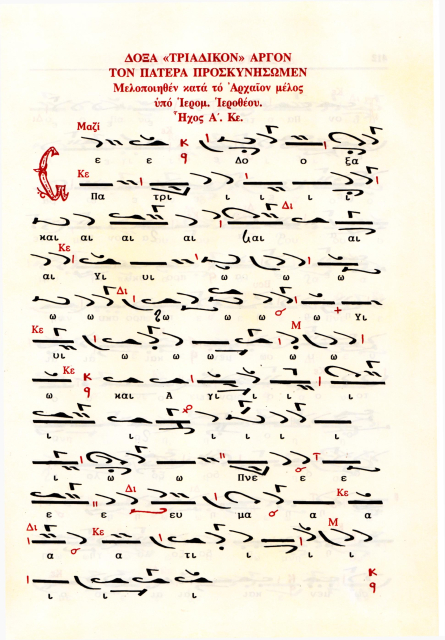 ΔΟΞΑ «ΤΡΙΑΔΙΚΟΝ» ΑΡΓΟΝ
ΤΟΝ ΠΑΤΕΡΑ ΠΡΟΣΚΥΝΗΣΩΜΕΝ
Μελοποιηθέν κατά τό Ἀρχαῖον μέλος
ὑπό Ἱερομ. Ἱεροθέου.
Ἦχος Α΄. Κε.
Μαζί
ε ε Δο ο ξα
Κε
Πα τρι ι ι ι ι
Δι
και αι αι αι και αι
Κε
αι Υι υι ω ω ω
Δι
ω ω ω ω ω ω Υι
Κε Μ
υι ω ω ω ω ω
Κε
ω και Α γι ι ι ι
ι ι ι ι ι ι
ι ω ω Πνε ε ε
Δι Κε
ε ε ευ μα α α
Δι Κε Μ
α α τι ι ι ι ι
ι ι ι